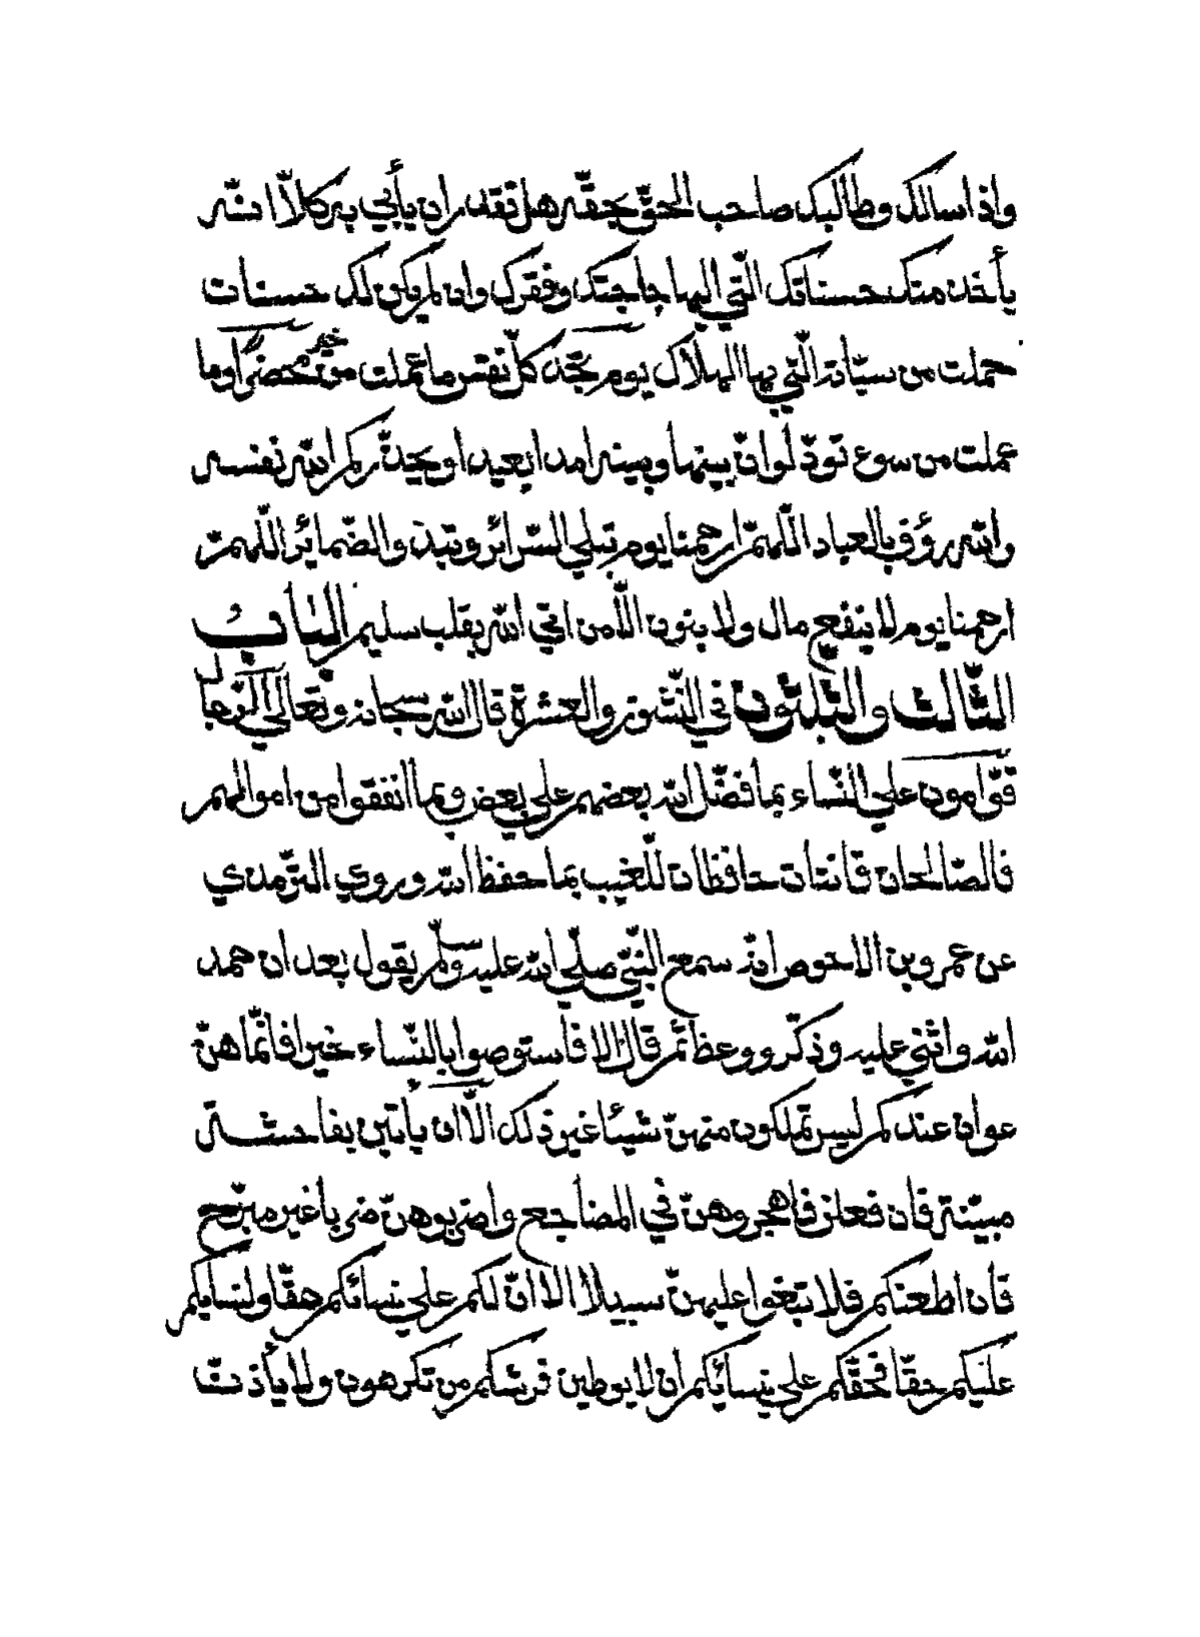 واذا سالك وطالبك صاحب الحقّ بحقّه هل تقدر ان يأتي به كلّا انّه
يأخذ منك حسناتك الّتي اليها حاجتك وفقرك وان لم يكن لك حسنات
حملت من سيّاته الّتي بها الهلاك يوم تجد كلّ نفس ما عملت من خير محضرا وما
عملت من سوء تودّ لو انّ بينها وبينه امدا بعيدا ويحذّركم الله نفسه
والله رؤف بالعباد اللّهمّ ارحمنا يوم تبلي السّرائر وتبد والضّمائر اللّهمّ
ارحمنا يوم لا ينفع مال ولا بنون الّا من اتي الله بقلب سليم الباب
الثّالث والثّلثون في النّشوز والعشرة قال الله سبحانه وتعالي الرّجال
قوّامون علي النّساء بما فضّل الله بعضهم علي بعض وبما انفقوا من اموالهم
فالصّالحات قانتات حافظات للّغيب بما حفظ الله وروي التّرمذي
عن عمرو بن الاحوص انّه سمع النّبيّ صلّي الله عليه وسلّم يقول بعد ان حمد
الله واثني عليه وذكّر ووعظ ثمّ قال الا فاستوصوا بالنّساء خيرا فانّما هنّ
عوان عندكم ليس تملكون منهنّ شيئا غير ذلك الّا ان يأتين بفاحشة
مبيّنة فان فعلن فاهجروهنّ في المضاجع واضربوهنّ ضربا غير مبرّح
فان اطعنكم فلا تبغوا عليهنّ سبيلا الا انّ لكم علي نسائكم حقّا ولنسايكم
عليكم حقّا فحقّكم علي نسائكم ان لا يوطين فرشكم من تكرهون ولا يأذنّ